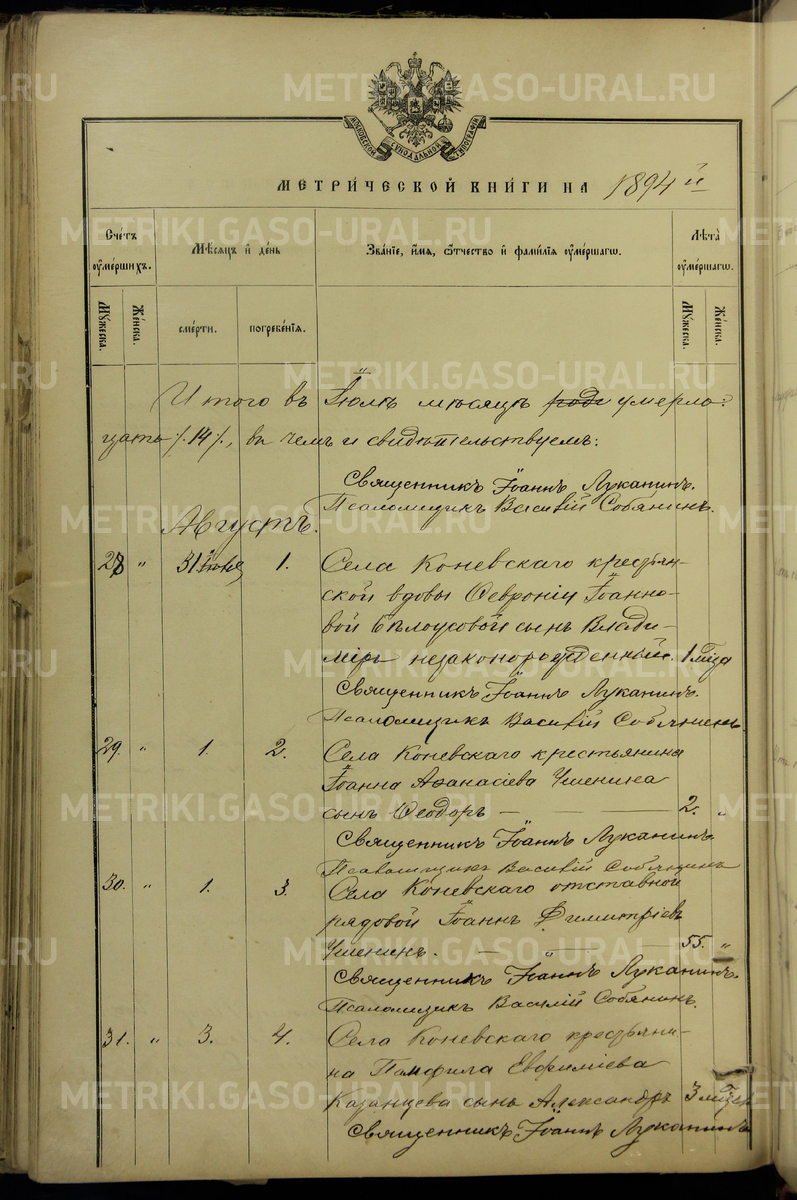 METRIKI.GASO-URAL.RU
МОСКОВСКОЙ СѴНОДАЛЬНОЙ ТИПОГРАФІИ
МЕТРИ́ЧЕСКОЙ КНИ́ГИ НА 1894 й
Сче́тъ ᲂумéршихъ.
Мѣ́сяцъ и҆ де́нь
Зва́нїе, и҆́мѧ, ѻ҆́тчество и҆ фами́лїѧ ᲂу҆ме́ршагѡ.
Лѣ́та ᲂу҆ме́ршагѡ.
Мꙋ́жеска.
Же́нска.
сме́рти.
погребе́нїѧ.
Мꙋ́жеска.
Же́нска.
Итого въ Іюлѣ мѣсяцѣ умерло
14, въ чемъ и свидѣтельствуемъ:
Священникъ Іоаннъ Луканинъ.
Псаломщикъ Василій Собянинъ.
Августъ.
28 " 31 1. Села Коневскаго крестьян-
ской вдовы Февроніи Іоанно-
вой Бѣлоусовой сынъ Влади-
міръ незаконорожденный. 1
Священникъ Іоаннъ Луканинъ.
Псаломщикъ Василій Собянинъ.
29. " 1. 2. Села Коневскаго крестьянина
Іоанна Аѳанасіева Ушенина
сынъ Ѳеодоръ — — 2. "
Священникъ Іоаннъ Луканинъ
Псаломщикъ Василій Собянинъ
30. " 1. 3. Села Коневскаго отставной
рядовой Іоаннъ Димитріевъ
Ушенинъ. — " — 55. "
Священникъ Іоаннъ Луканинъ.
Псаломщикъ Василій Собянинъ.
31. " 3. 4. Села Коневскаго крестьяни-
на Памфила Евфиміева
Казанцева сынъ Александръ 3
Священникъ Іоаннъ Луканинъ